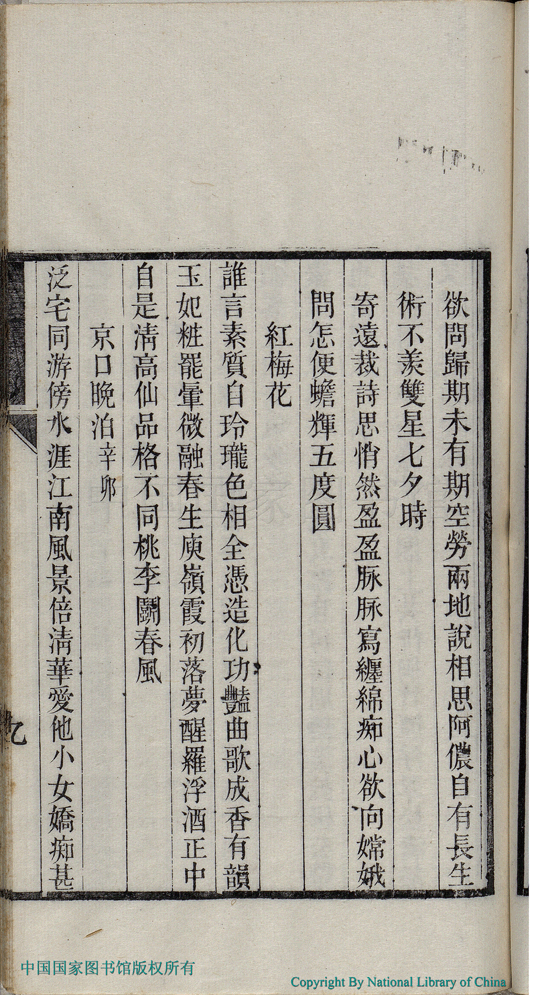 欲問歸期未有期空勞兩地說相思阿儂自有長生
術不羨雙星七夕時
寄遠裁詩思悄然盈盈脉脉寫纏綿痴心欲向嫦娥
問怎便蟾輝五度圓
紅梅花
誰言素質自玲瓏色相全憑造化功豔曲歌成香有韻
玉妃粧罷暈微融春生庾嶺霞初落夢醒羅浮酒正中
自是清高仙品格不同桃李鬬春風
京口晚泊辛卯
泛宅同游傍水涯江南風景倍清華愛他小女嬌痴甚
中国国家图书馆版权所有
Copyright By National Library of China